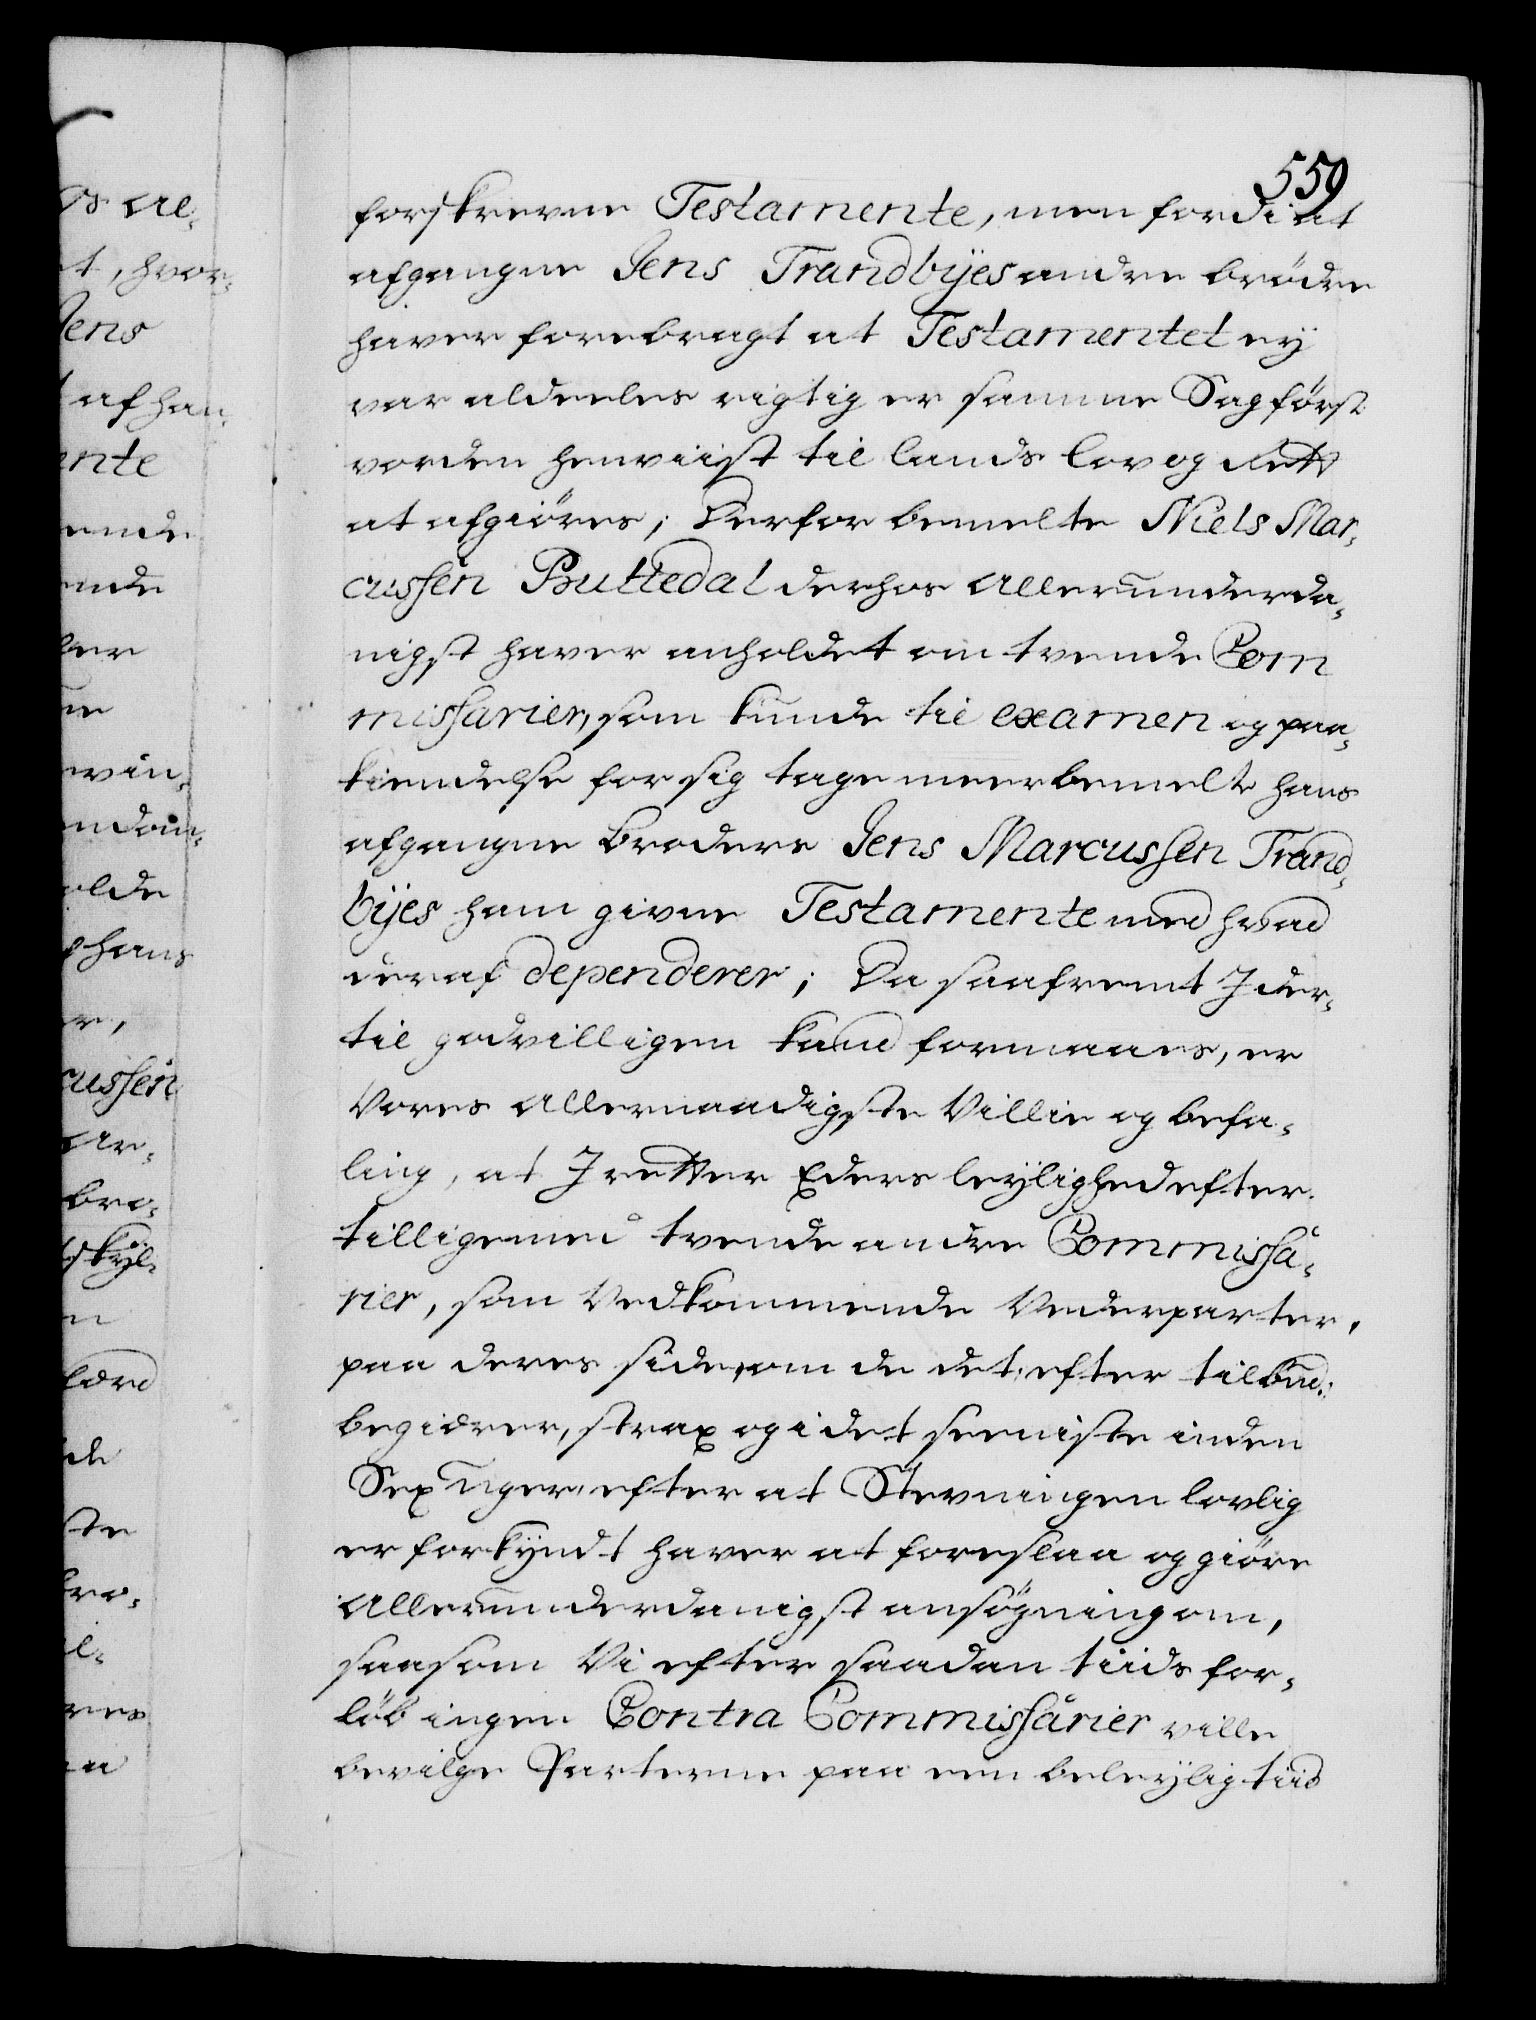 559
forskrevne Testamente, men fordi at
afgangne Jens Trandbÿes andre brödre
haver forebragt at Testamentet eÿ
var aldeeles rigtig er samme Sag först
vorden henviist til lands lov og Rett
at afgiöres; Derfor bemelte Niels Mar-
cussen Buttedal derhos allerunderda-
nigst haver anholdet om tvende Com
missarier, som kunde til examen og paa-
kiendelse for sig tage meerbemelte hans
afgangne broders Jens Marcussen Trand-
bÿes ham givne Testamente med hvad
deraf dependerer; Da saafremt I der-
til godvilligen kand formaaes, er
Vores allernaadigste Villie og befa-
ling, at I retter Eders leÿlighed efter
tilligemed tvende andre Commissa-
rier, som Vedkommende Vederparter,
paa deres side, om de det, efter tilbud,
begiærer, strax og i det seeniste inden
Sex Uger, efter at Stevningen lovlig
er forkÿndt haver at foreslaa og giöre
allerunderdanigst ansögning om,
saasom Vi efter saadan tiids for-
löb ingen Contra Commissarier ville
bevilge Parterne paa een beleÿlig tiid
al-
t, hvor-
Jens
t af han-
ente
ende
ende
ler
ne
olde
hans
cussen
ar-
bro-
tskÿl-
n
lærd
de
ste
bro-